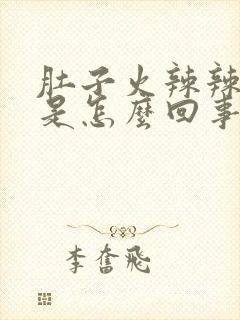 肚子火辣辣
是怎麼回事
李奮飛